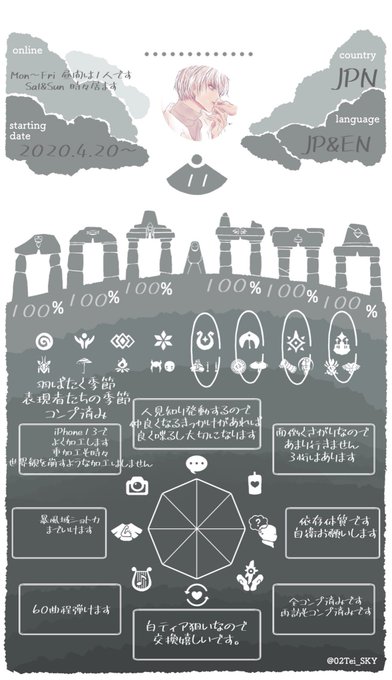 online
Mon〜Fri 昼間は1人です
Sat&Sun 時々居ます
country
JPN
starting
date
2020.4.20〜
language
JP&EN
11
100%
100%
100%
100%
100%
100%
羽ばたく季節
表現者たちの季節
コンプ済み
iPhone13で
よく加工します
車加工も時々
世界観を崩すような加工はしません
人見知り発動するので
仲良くなるきっかけがあれば
良く喋るし大切になります
面倒くさがりなので
あまり行きません
3桁はあります
暴風域ショトカ
までいけます
依存体質です
自衛お願いします
60曲程弾けます
白ティア狙いなので
交換嬉しいです。
全コンプ済みです
再訪もコンプ済みです
@02Tei_SKY